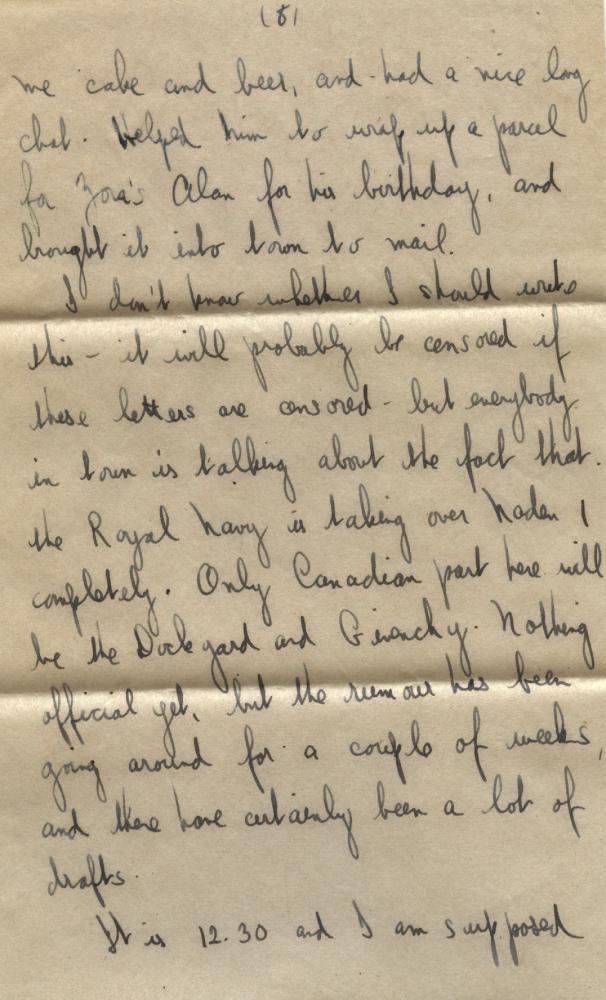 (8)
me cake and beer, and had a nice long
chat. Helped him to wrap up a parcel
for Zora's Alan for his birthday, and
brought it into town to mail.
I don't know whether I should write
this - it will probably be censored if
these letters are censored - but everybody
in town is talking about the fact that
the Royal Navy is taking over Naden 1
completely. Only Canadian part here will
be the Dockyard and Givenchy. Nothing
official yet, but the rumour has been
going around for a couple of weeks,
and there have certainly been a lot of
drafts.
It is 12.30 and I am supposed